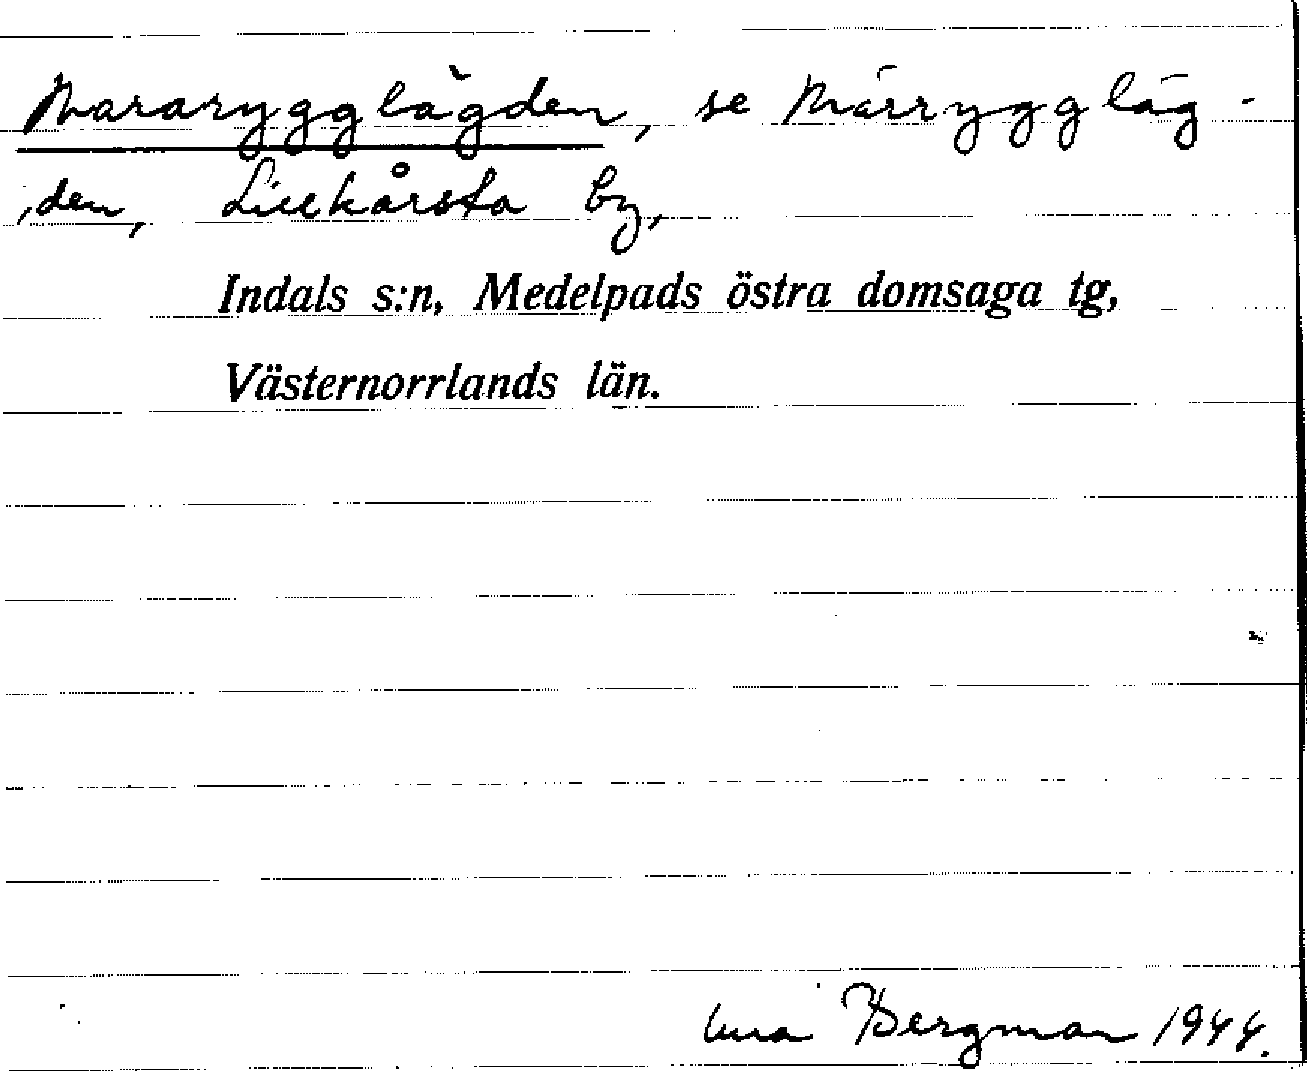 Mararygglägden, se Märryggläg-
den, Lillkårsta by,
Indals s:n, Medelpads östra domsaga tg,
Västernorrlands län.
Bergman 1944.